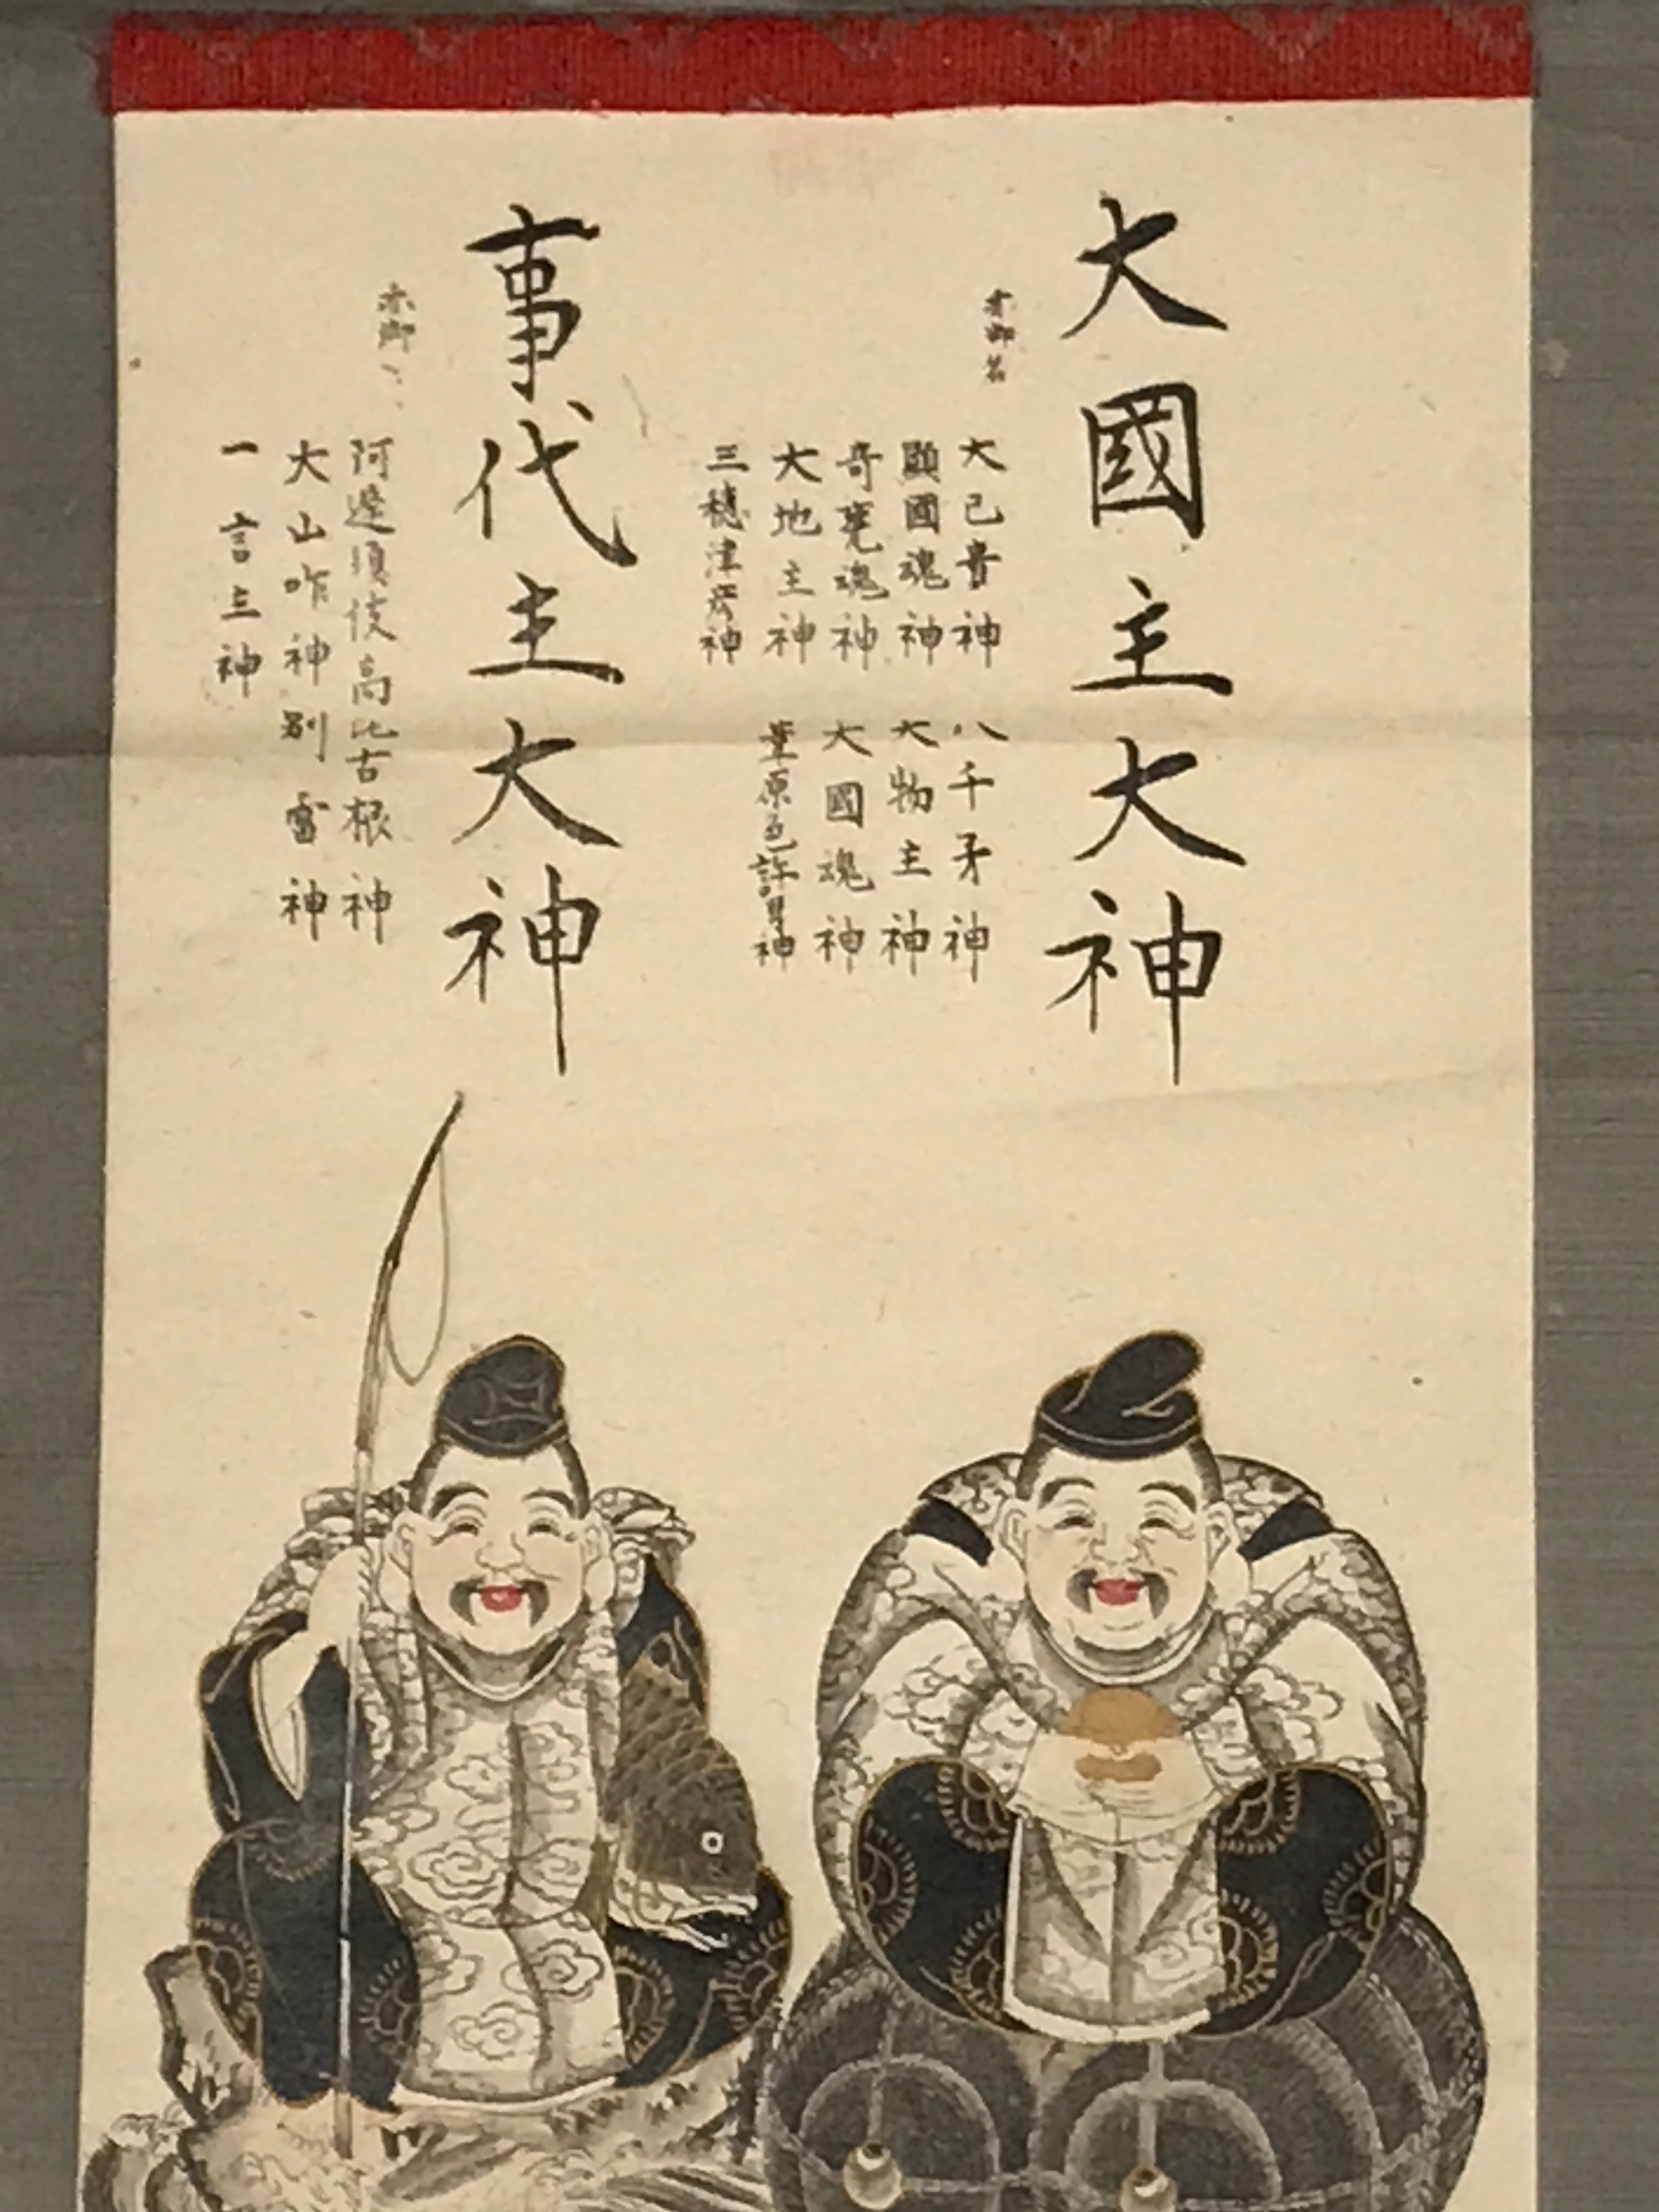 大國主大神
亦御名
大己貴神
八千矛神
顕國魂神
大物主神
奇甕魂神
大國魂神
大地主神
葦原色許男神
三穂津彦神
事代主大神
亦御〻
阿遅須伎高比古根神
大山咋神別雷神
一言主神